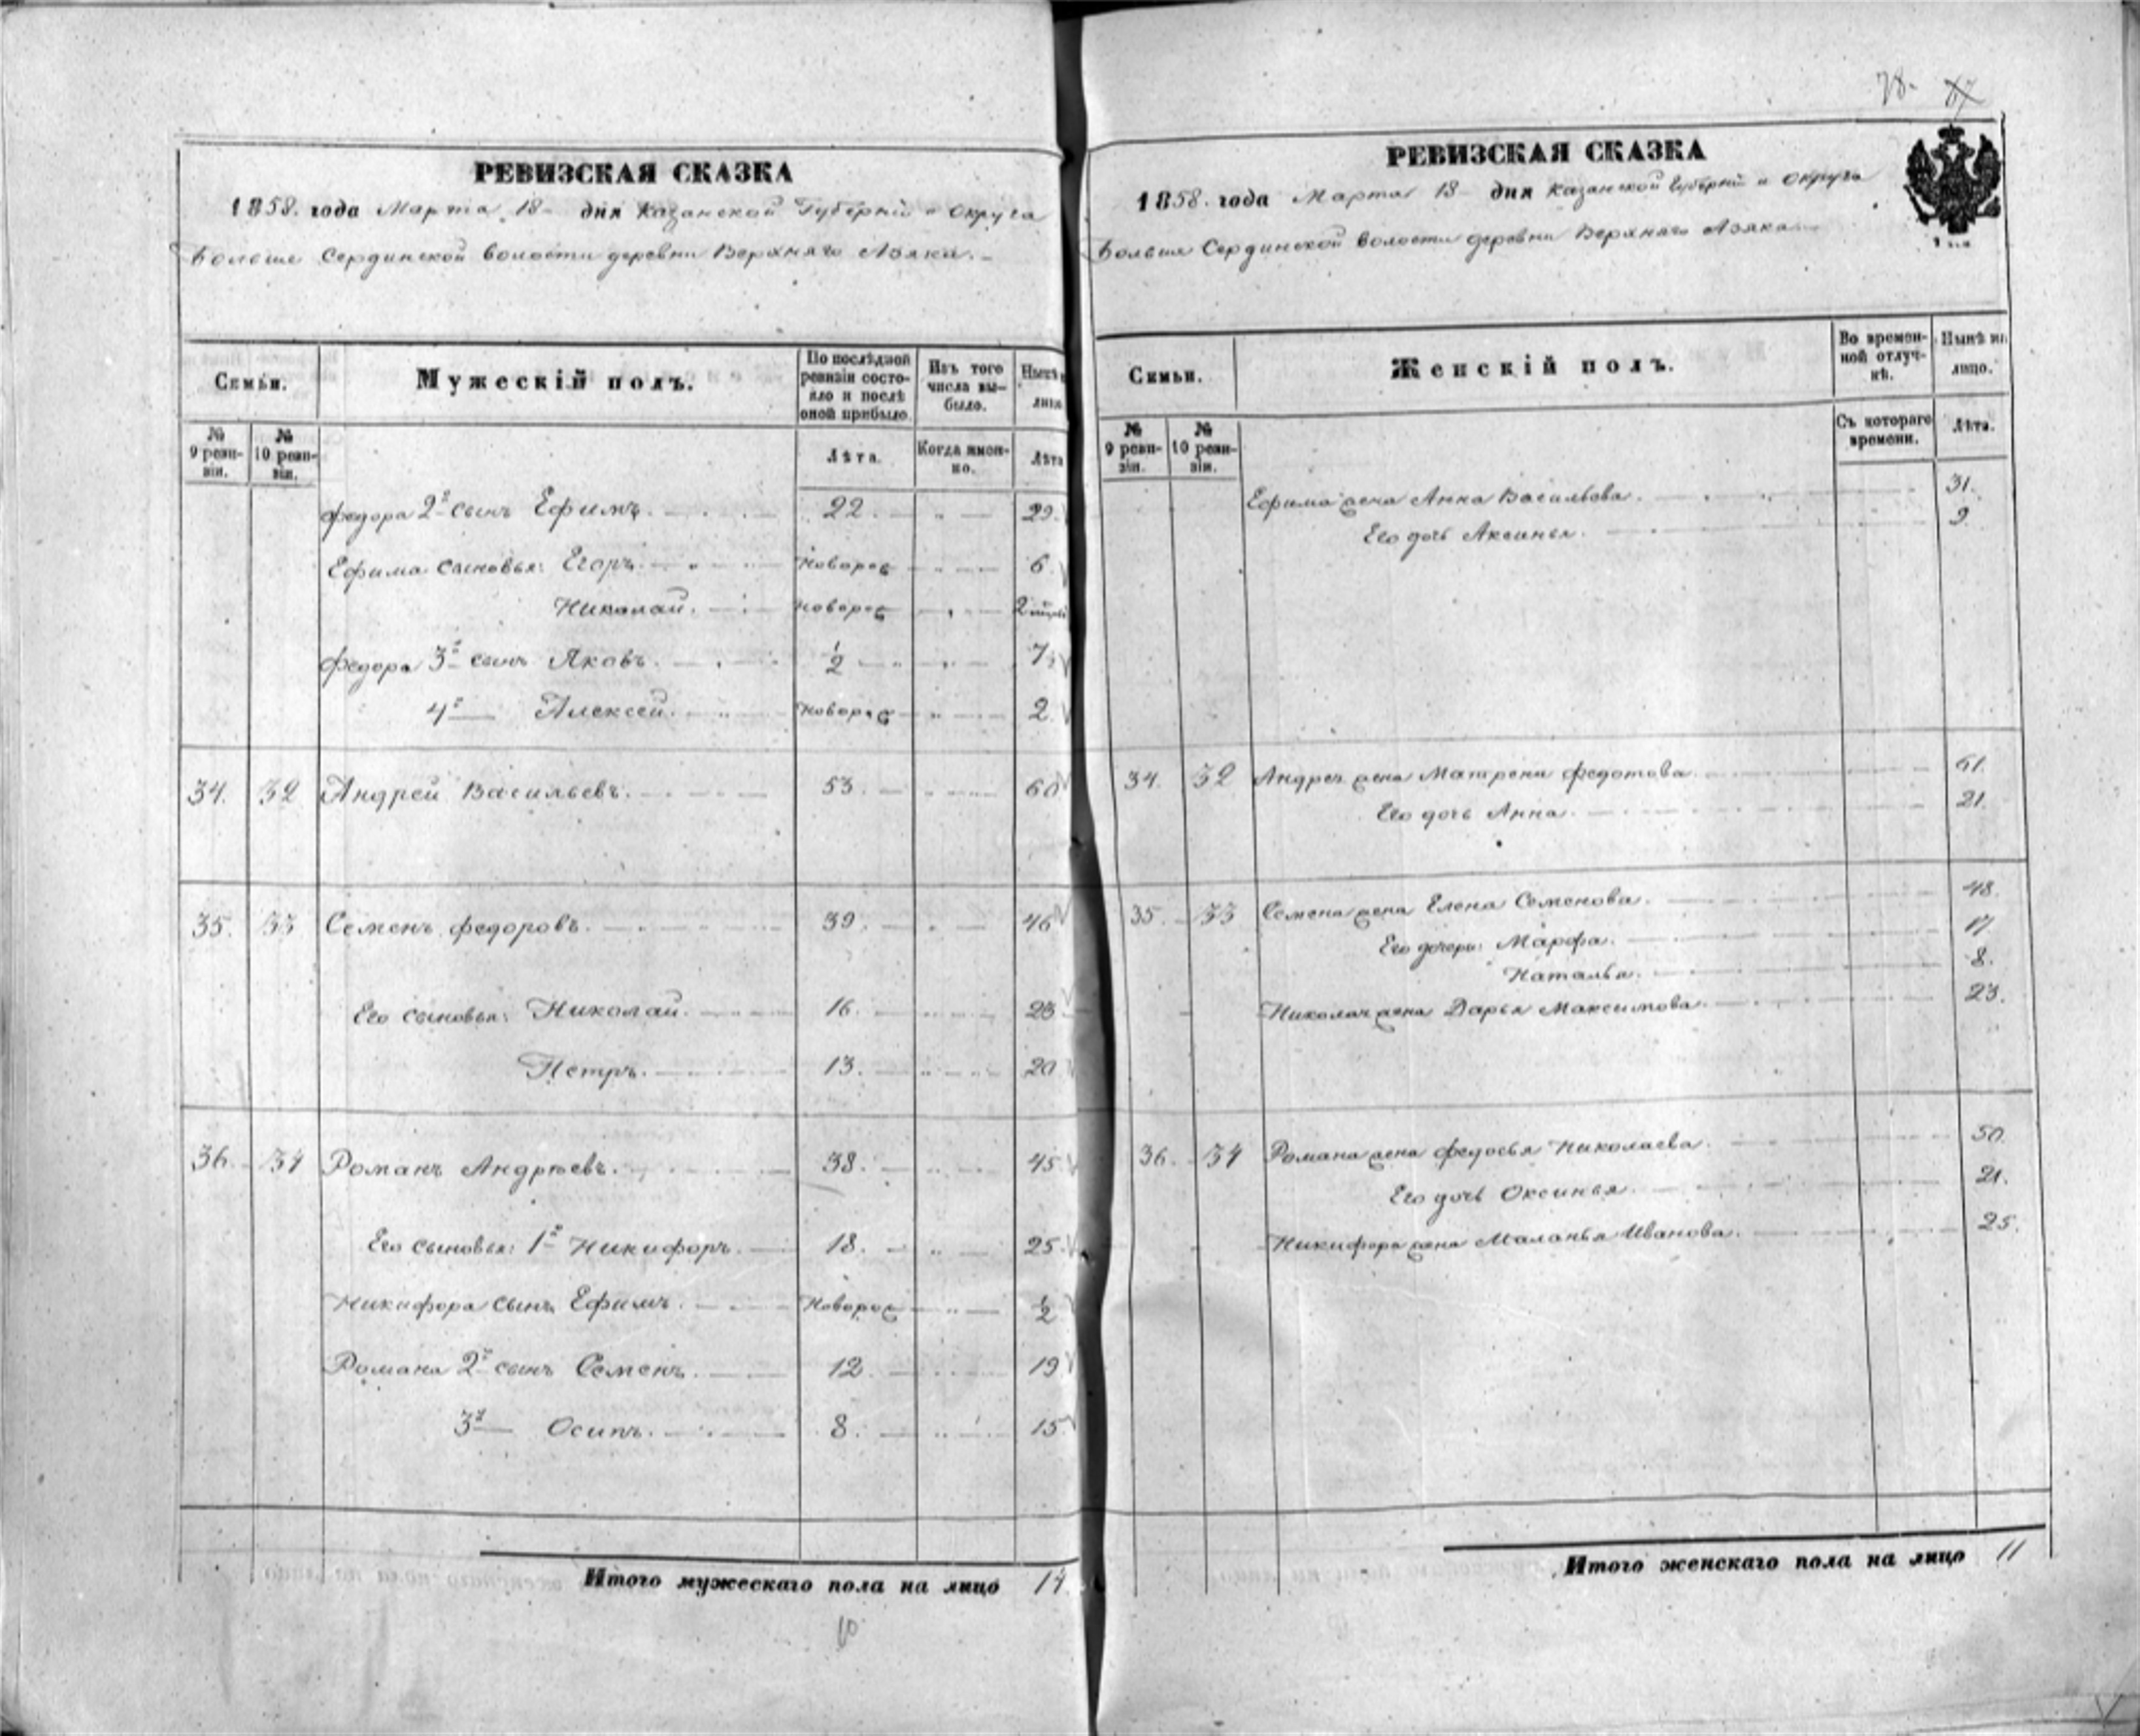 78.
РЕВИЗСКАЯ СКАЗКА
1858. года Марта 18 дня Казанской Губерніи и Округа
Больше Сердинской волости деревни Верхняго Азяка.
Семьи.
Мужескій полъ.
По послѣдней ревизіи состояло и послѣ оной прибыло.
Изъ того числа выбыло.
Нынѣ на лицо
№ 9 ревизіи.
№ 10 ревизіи.
Лѣта.
Когда именно.
Лѣта
Федора 2й сынъ Ефимъ. 22. 29.
Ефима сыновья: Егоръ. новорож 6.
Николай. новорож 2
Федора 3й сынъ Яковъ. 1/2 7 1/2
4й Алексей. новорож 2.
34. 32 Андрей Васильевъ. 53. 60
35. 33 Семенъ Федоровъ. 39. 46
Его сыновья: Николай. 16. 23
Петръ. 13. 20
36. 34 Романъ Андрѣевъ. 38. 45
Его сыновья: 1й Никифоръ. 18. 25.
Никифора сынъ Ефимъ. новорож 1/2
Романа 2й сынъ Семенъ. 12. 19
3й Осипъ. 8. 15
Итого мужескаго пола на лицо 14.
10
РЕВИЗСКАЯ СКАЗКА
1858. года Марта 18 дня Казанской Губерніи и Округа
Больше Сердинской волости деревни Верхняго Азяка
Семьи.
Женскій полъ.
Во временной отлучкѣ.
Нынѣ на лицо.
№ 9 ревизіи.
№ 10 ревизіи.
Съ котораго времени.
Лѣта.
Ефима жена Анна Васильева. 31.
Его дочь Аксинья. 9
34. 32 Андрея жена Матрена Федотова 61.
Его дочь Анна. 21.
35. 33 Семена жена Елена Семенова. 48.
Его дочери: Марфа. 17.
Наталья. 8.
Николая жена Дарья Максимова. 23.
36. 34 Романа жена Федосья Николаева. 50.
Его дочь Оксинья. 21.
Никифора жена Маланья Иванова. 25.
Итого женскаго пола на лицо 11